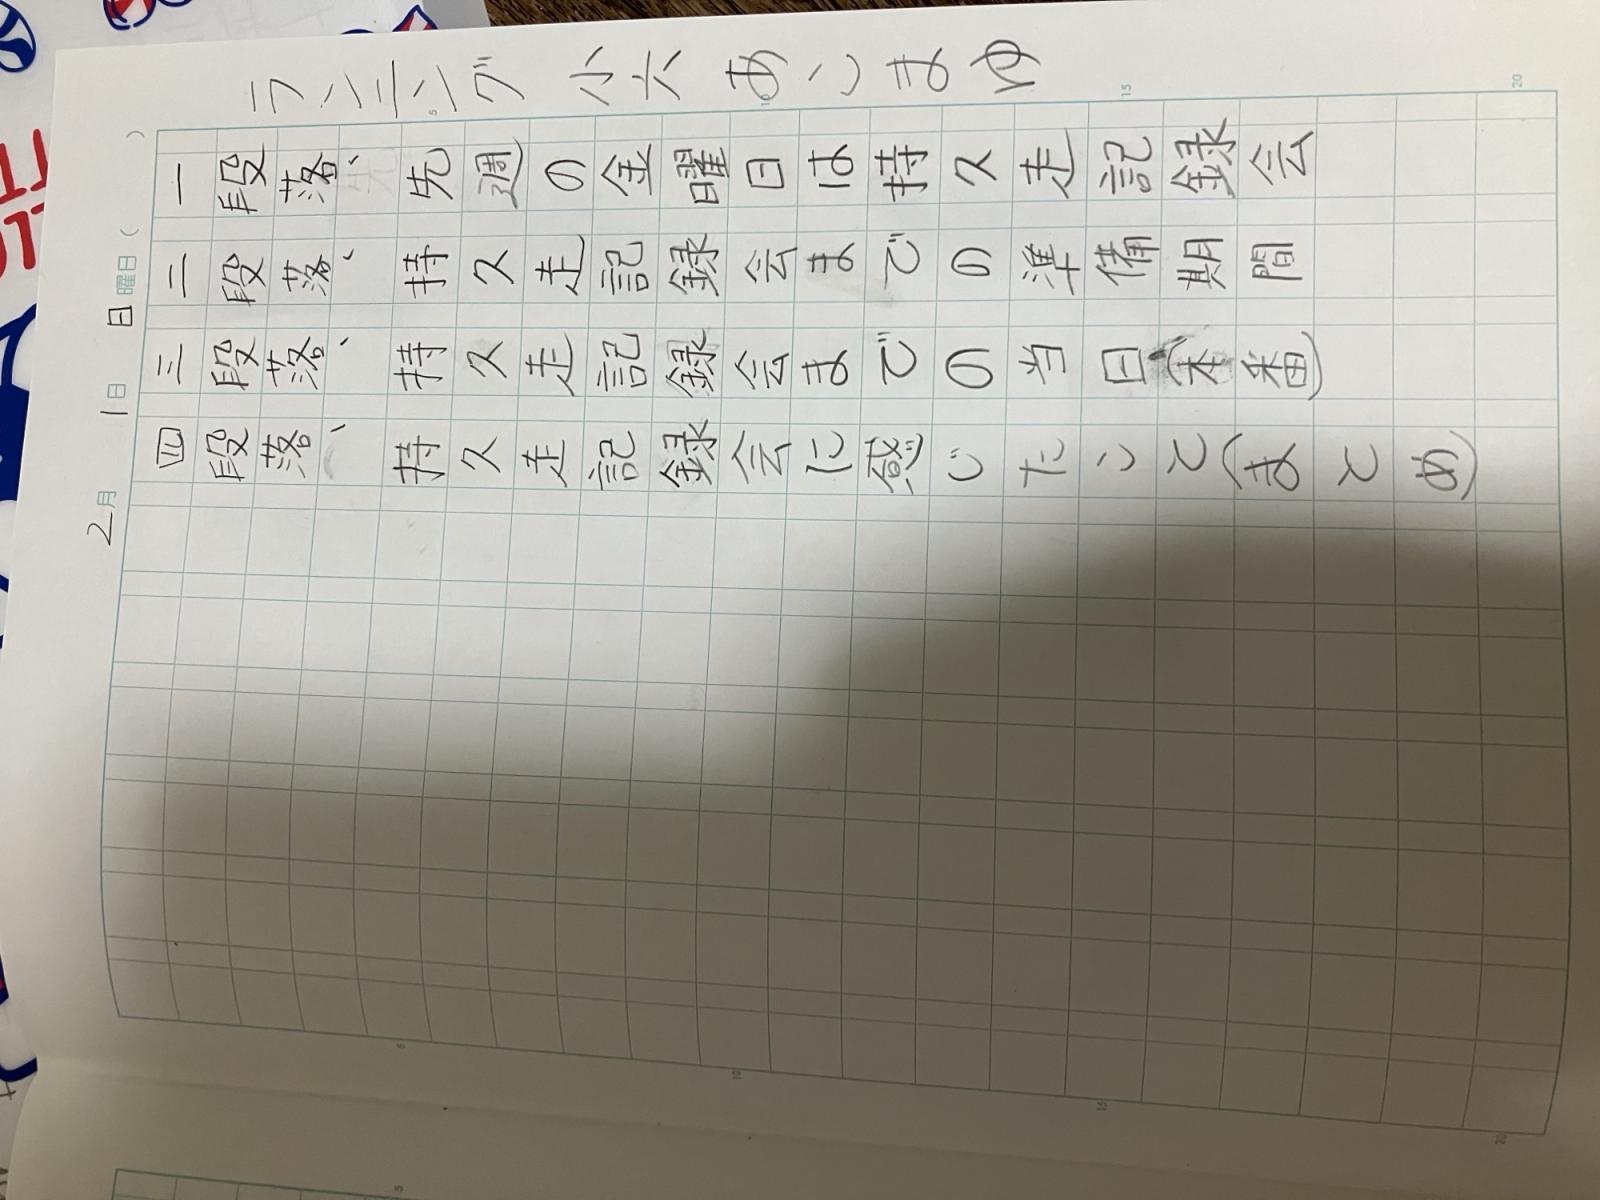 ランニング 小六 あいまゆ
2月1日日曜日( )
一段落、先週の金曜日は持久走記録会
二段落、持久走記録会までの準備期間
三段落、持久走記録会までの当日(本番)
四段落、持久走記録会に感じたこと(まとめ)
5
10
15
20
5
10
15
20
5